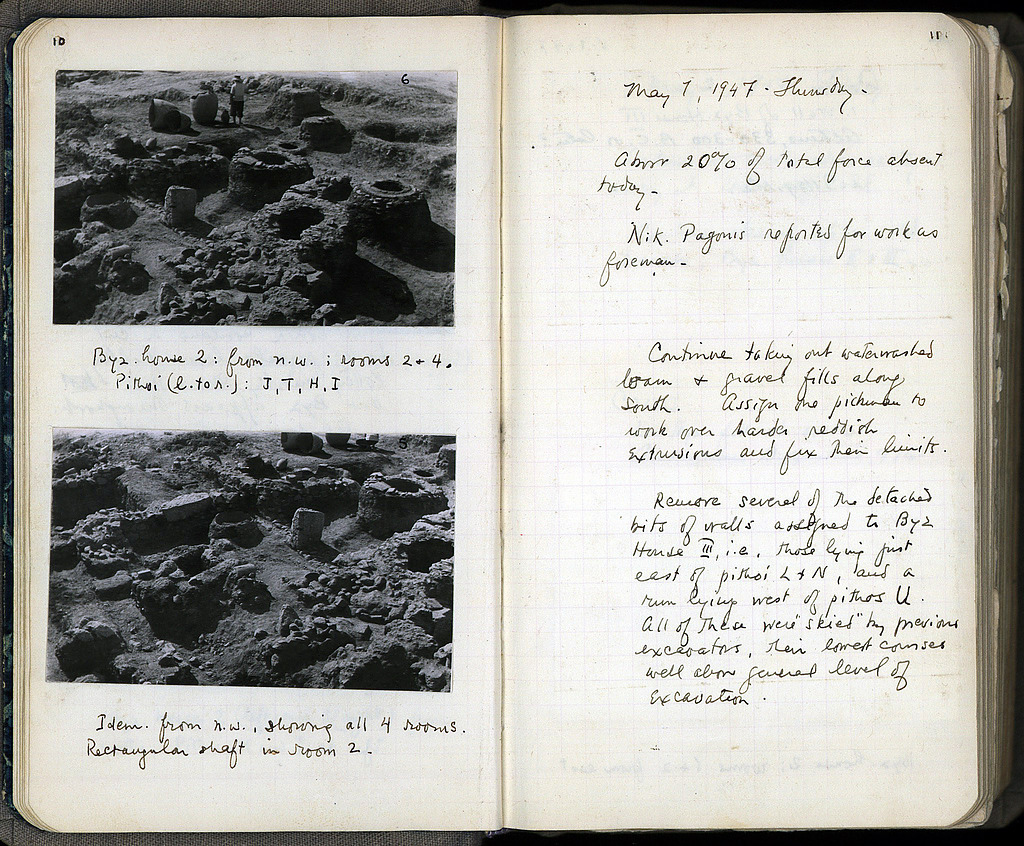 10
6
Byz. house 2: from n.w.; rooms 2 & 4.
Pithoi (l. to r.): J, T, H, I
5
Idem. from n.w., showing all 4 rooms.
Rectangular shaft in room 2.
11.
May 1, 1947 - Thursday.
About 20% of total force absent
today.
Nik. Pagonis reported for work as
foreman.
Continue taking out waterwashed
loam & gravel fills along
South. Assign one pickman to
work over harder reddish
extrusions and fix their limits.
Remove several of the detached
bits of walls assigned to Byz
House III, i.e., those lying just
east of pithoi L & N, and a
run lying west of pithos U.
All of these were "skied" by previous
excavators, their lowest courses
well above general level of
excavation.